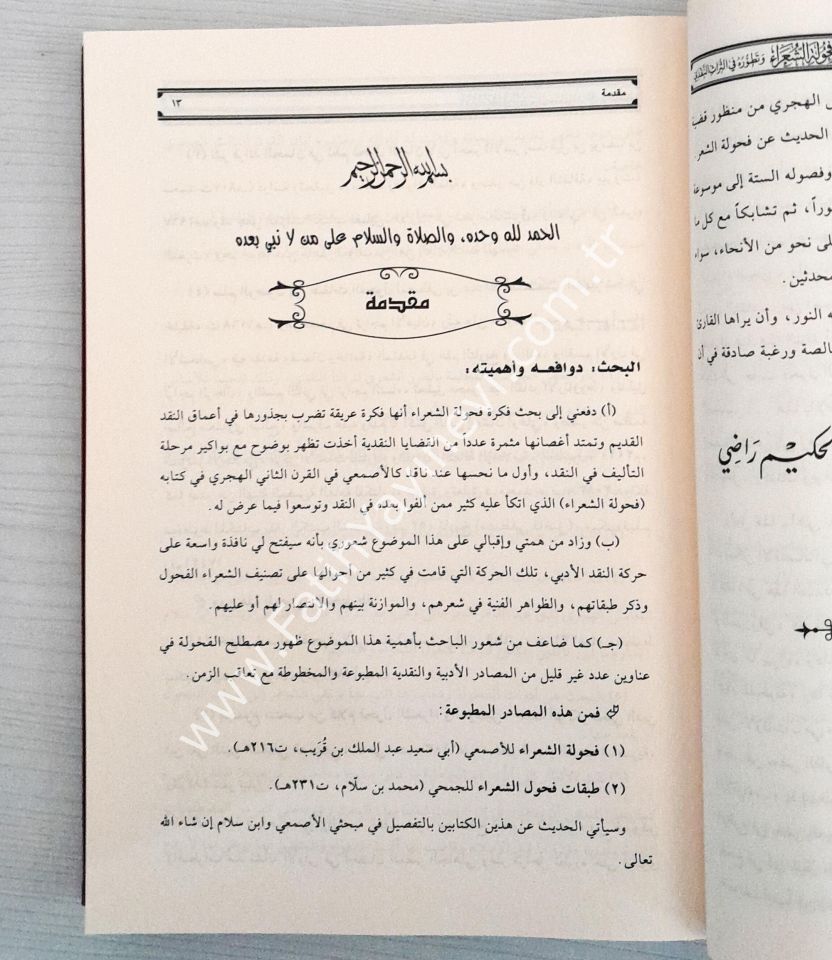 مقدمة
١٣
بسم الله الرحمن الرحيم
الحمد لله وحده، والصلاة والسلام على من لا نبي بعده
مقدمة
البحث: دوافعه وأهميته:
(أ) دفعني إلى بحث فكرة فحولة الشعراء أنها فكرة عريقة تضرب بجذورها في أعماق النقد
القديم وتمتد أغصانها مثمرة عدداً من القضايا النقدية أخذت تظهر بوضوح مع بواكير مرحلة
التأليف في النقد، وأول ما نحسها عند ناقد كالأصمعي في القرن الثاني الهجري في كتابه
(فحولة الشعراء) الذي اتكأ عليه كثير ممن ألفوا بعده في النقد وتوسعوا فيما عرض له.
(ب) وزاد من همتي وإقبالي على هذا الموضوع شعوري بأنه سيفتح لي نافذة واسعة على
حركة النقد الأدبي، تلك الحركة التي قامت في كثير من أحوالها على تصنيف الشعراء الفحول
وذكر طبقاتهم، والظواهر الفنية في شعرهم، والموازنة بينهم والانتصار لهم أو عليهم.
(جـ) كما ضاعف من شعور الباحث بأهمية هذا الموضوع ظهور مصطلح الفحولة في
عناوين عدد غير قليل من المصادر الأدبية والنقدية المطبوعة والمخطوطة مع تعاقب الزمن.
فمن هذه المصادر المطبوعة:
(١) فحولة الشعراء للأصمعي (أبي سعيد عبد الملك بن قُرَيب، ت٢١٦هـ).
(٢) طبقات فحول الشعراء للجمحي (محمد بن سلّام، ت٢٣١هـ).
وسيأتي الحديث عن هذين الكتابين بالتفصيل في مبحثي الأصمعي وابن سلام إن شاء الله
تعالى.
فحولة الشعراء وتطوره في التراث النقدي
الهجري من منظور
الحديث عن فحولة
وفصوله الستة إلى
ثم تشابكاً مع كل
نحو من الأنحاء،
النور، وأن يراها القارئ
ورغبة صادقة في
راضي
www.FatihYayinevi.com.tr